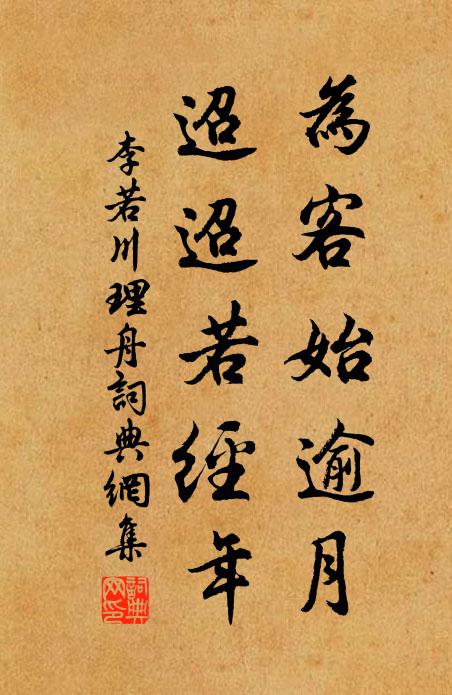 為客始逾月
迢迢若經年
李若川理舟詞典網集
詞典
网印